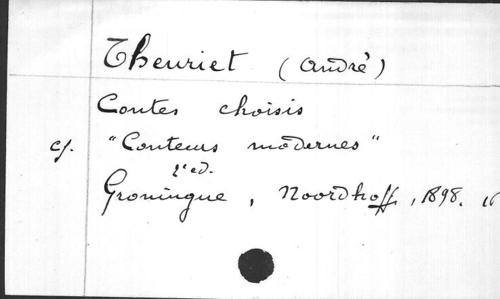 Theuriet (André)
Contes choisis
cf. "Conteurs modernes"
2e ed.
Groningue, Noordhoff, 1898.